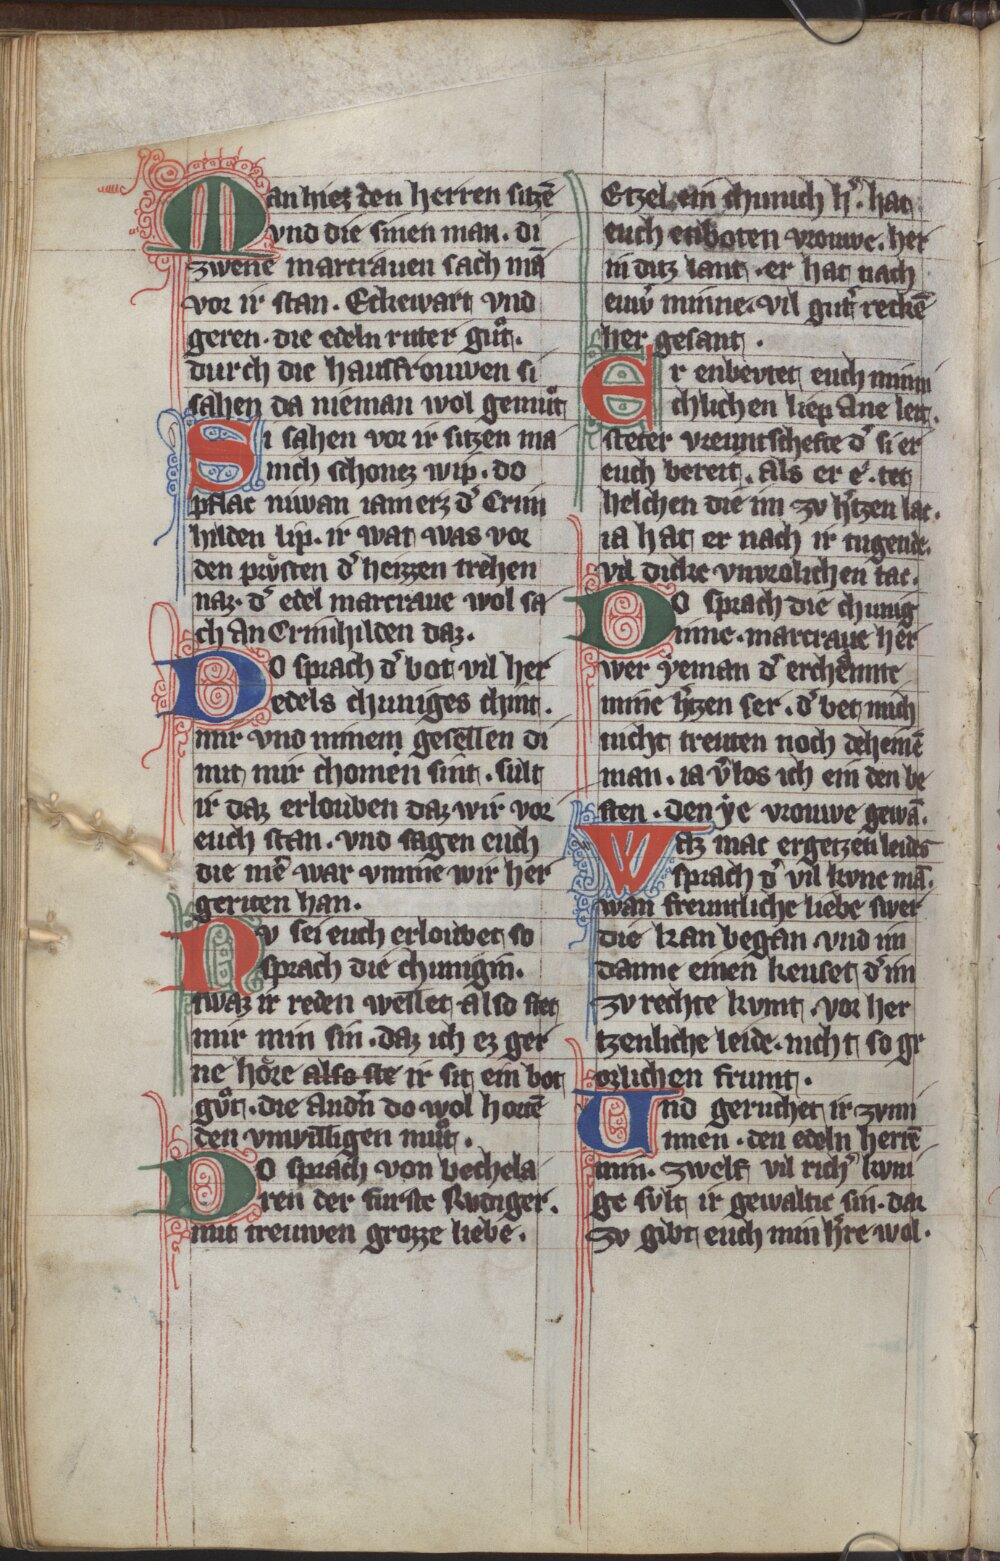 Man hiez den herren sitzē
vnd die sinen man. di
zwene marcrauen sach mā
vor ir stan. Eckewart vnd
geren. die edeln ritter gůt.
durch die hausfrouwen si
sahen da nieman wol gemůt
Si sahen vor ir sitzen ma
nich schonez wip. do
pflac niwan iamerz dˀ Crim
hilden lip. ir wat was vor
den průsten dˀ heizzen trehen
naz. dˀ edel marcraue wol sa
ch An Crimhilden daz.
Do sprach dˀ bot vil her
edels chuniges chint.
mir vnd minem gesellen di
mit mir chomen sint. sult
ir daz erlouben daz wir vor
euch stan. vnd sagen euch
die mēˀ war vmme wir her
geriten han.
Nv sei euch erloubet so
sprach die chunigin.
swaz ir reden wellet also stet
mir min sin. daz ich ez ger
ne hőre also ste ir sit ein bot
gůt. die Andˀn do wol hortē
den vnwilligen můt.
Do sprach von bechela
ren der furste Rudiger.
mit treuwen grozze liebe.
Etzel ein chunich hˀ. hat
euch enboten vrouwe. her
in ditz lant. er hat nach
euwˀ minne. vil gutˀ reckē
her gesant.
Er enbeutet euch minni
chlichen liep Ane leit.
steter vreuntschefte dˀ si er
euch bereit. Als er eˀ. tet
helchen die im zv hˀtzen lac.
ia hat er nach ir tugende.
vil dicke vnvrolichen tac.
Do sprach die chunig
inne. marcraue her
wer yeman dˀ erchennte
mine hˀtzen ser. dˀ bet mich
nicht treuten noch deheinē
man. ia vˀlos ich ein den be
sten. den ye vrouwe gewā.
Waz mac ergetzen leides
sprach dˀ vil kvne mā.
wan freuntliche liebe swer
die kan began vnd im
danne einen keuset dˀ im
zv rechte kvmt. vor her
tzenliche leide. nicht so gr
ozlichen frumt.
Und geruchet ir zvmi
nnen. den edeln herrē
min. zwelf vil richˀ kvni
ge svlt ir gewaltic sin. dar
zv gibt euch min hˀre wol.